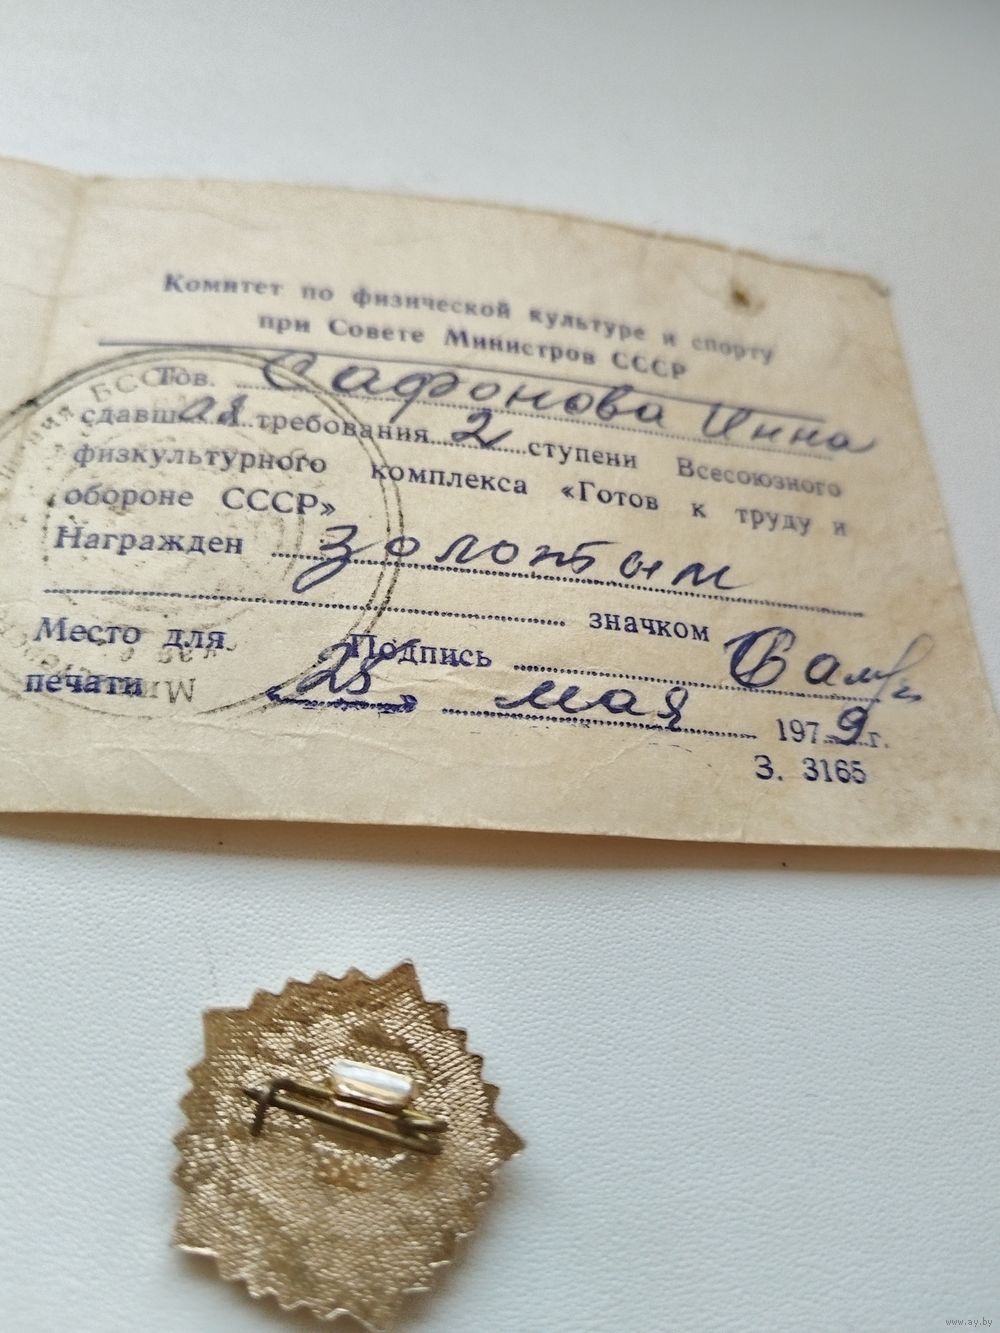 Комитет по физической культуре и спорту
при Совете Министров СССР
Тов. Сафонова Инна
сдавшая требования 2 ступени Всесоюзного
физкультурного комплекса «Готов к труду и
обороне СССР»
Награжден золотым
значком
Место для печати
Подпись
«25» мая 1979 г.
З. 3165
БССР
www.ay.by